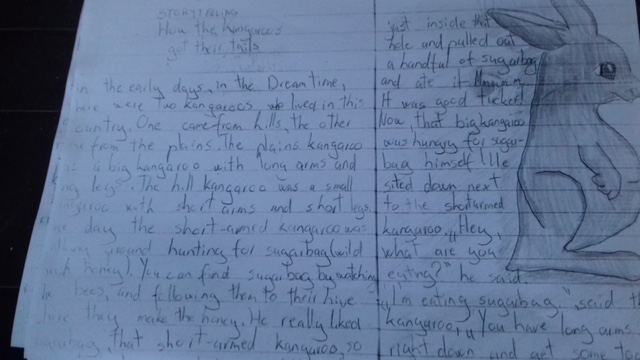 STORYTELLING
How the kangaroos
got their tails
n the early days, in the Dream time,
here were two kangaroos wo lived in this
country. One came from hills, the other
from the plains. The plains kangaroo
a big kangaroo with long arms and
ng legs. The hill kangaroo was a small
garoo with short arms and short legs.
day the short-armed kangaroo was
around hunting for sugarbag (wild
honey). You can find sugarbag by watching
bees, and following them to their hive
where they make the honey. He really liked
sugarbag, that short-armed kangaroo, so
just inside that
hole and pulled out
a handful of sugarbag
and ate it. Mmmm,
It was good tucker!
Now that big kangaroo
was hungry for sugar-
bag himself! He
sited down next
to the short armed
kangaroo. „Hey,
what are you
eating?" he said.
„I'm eating sugarbag", said t
kangaroo, „You have long arms
right down and get some